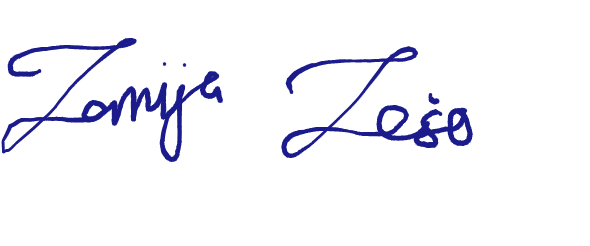 Zomija Zeša